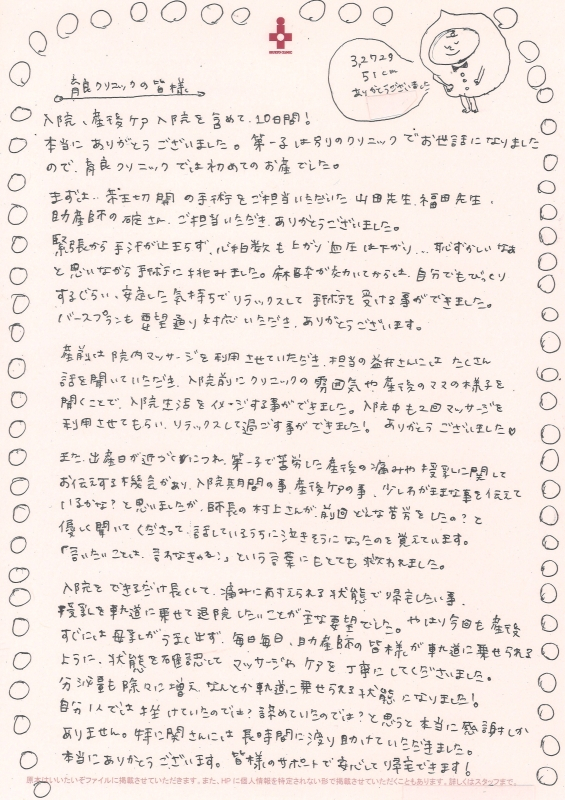 3,272g
51cm
ありがとうございました
育良クリニックの皆様
入院、産後ケア入院を含めて、10日間！
本当にありがとうございました。第一子は別のクリニックでお世話になりました
ので、育良クリニックでは初めてのお産でした。
まずは、帝王切開の手術をご担当いただいた山田先生、福田先生、
助産師の碇さん、ご担当いただき、ありがとうございました。
緊張から手汗が止まらず、心拍数も上がり血圧は下がり…恥ずかしいなぁ
と思いながら手術に挑みました。麻酔が効いてからは、自分でもびっくり
するぐらい、安定した気持ちでリラックスして手術を受ける事ができました。
バースプランも要望通り対応いただき、ありがとうございます。
産前は院内マッサージを利用させていただき、担当の益井さんにはたくさん
話を聞いていただき、入院前にクリニックの雰囲気や産後のママの様子を
聞くことで、入院生活をイメージする事ができました。入院中も2回マッサージを
利用させてもらい、リラックスして過ごす事ができました！ありがとうございました♡
また、出産日が近づくにつれ、第一子で苦労した産後の痛みや授乳に関して
お伝えする機会があり、入院期間の事、産後ケアの事、少しわがままな事を伝えて
いるかな？と思いましたが、師長の村上さんが、前回どんな苦労をしたの？と
優しく聞いてくださって、話しているうちに泣きそうになったのを覚えています。
「言いたいことは、言わなきゃね！」という言葉にもとても救われました。
入院をできるだけ長くして、痛みに耐えられる状態で帰宅したい事、
授乳を軌道に乗せて退院したいことが主な要望でした。やはり今回も産後
すぐには母乳がうまく出ず、毎日毎日、助産師の皆様が軌道に乗せられる
ように、状態を確認してマッサージやケアを丁寧にしてくださいました。
分泌量も除々に増え、なんとか軌道に乗せられる状態になりました！
自分1人では挫けていたのでは？諦めていたのでは？と思うと本当に感謝しか
ありません。特に関さんには長時間に渡り助けていただきました。
本当にありがとうございます。皆様のサポートで安心して帰宅できます！
原本はいいたいぞファイルに掲載させていただきます。また、HPに個人情報を特定されない形で掲載させていただくこともあります。詳しくはスタッフまで。